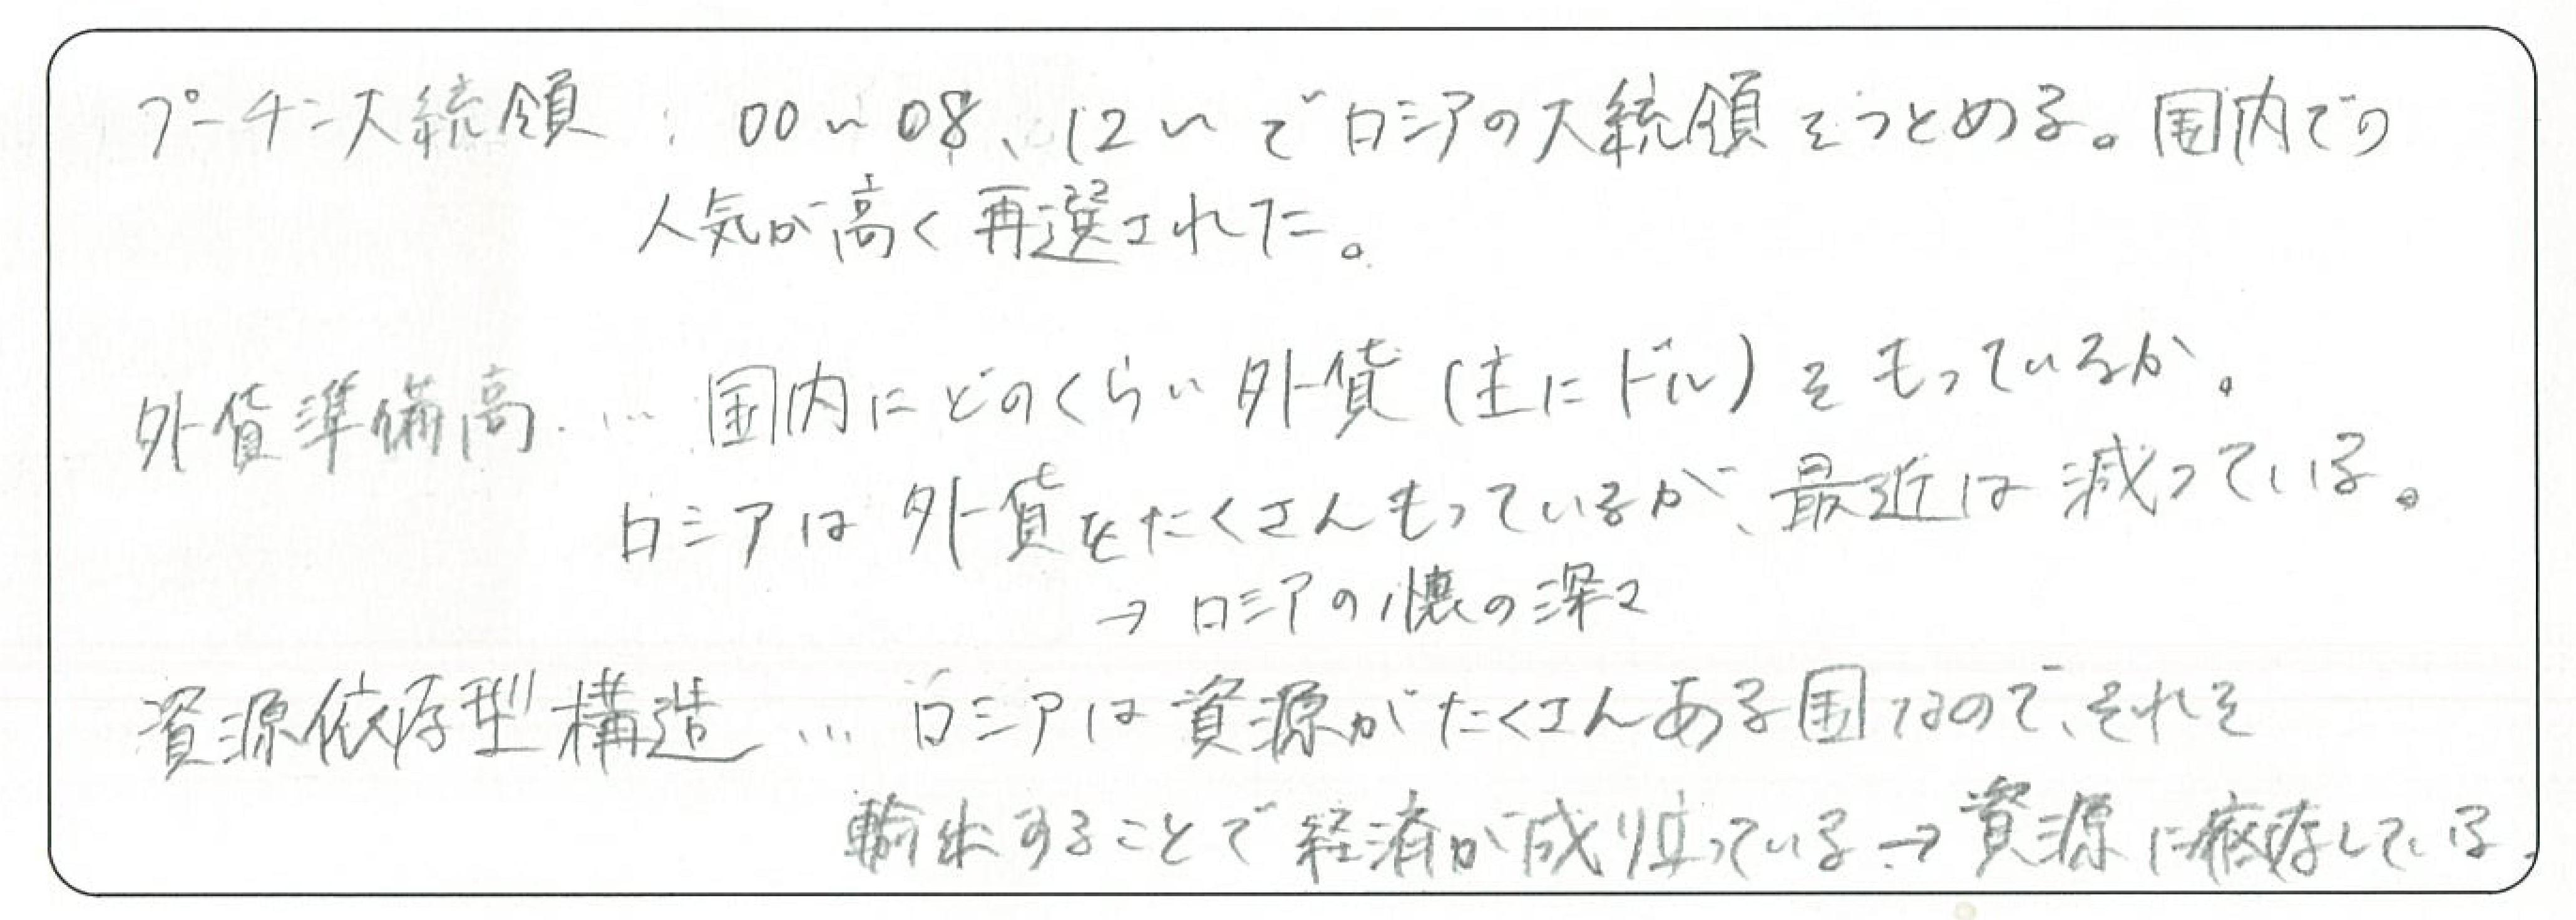 プーチン大統領：00〜08、12〜でロシアの大統領をつとめる。国内での
人気が高く再選された。
外貨準備高……国内にどのくらい外貨(主にドル)をもっているか。
ロシアは外貨をたくさんもっているが、最近は減っている。
→ロシアの懐の深さ
資源依存型構造…ロシアは資源がたくさんある国なので、それを
輸出することで経済が成り立っている→資源に依存している。